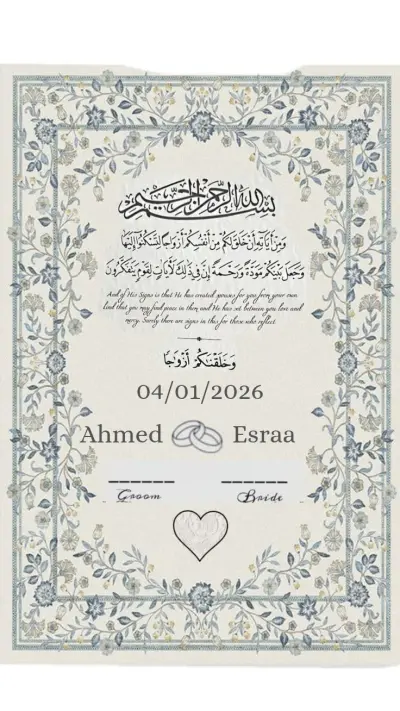 بسم الله الرحمن الرحيم
وَمِنْ آيَاتِهِ أَنْ خَلَقَ لَكُمْ مِنْ أَنْفُسِكُمْ أَزْوَاجًا لِتَسْكُنُوا إِلَيْهَا
وَجَعَلَ بَيْنَكُمْ مَوَدَّةً وَرَحْمَةً إِنَّ فِي ذَلِكَ لَآيَاتٍ لِقَوْمٍ يَتَفَكَّرُونَ
And of His Signs is that He has created spouses for you from your own
kind that you may find peace in them and He has set between you love and
mercy. Surely there are signs in this for those who reflect
وَخَلَقْنَكُمْ أَزْوَجًا
04/01/2026
Ahmed Esraa
Groom Bride